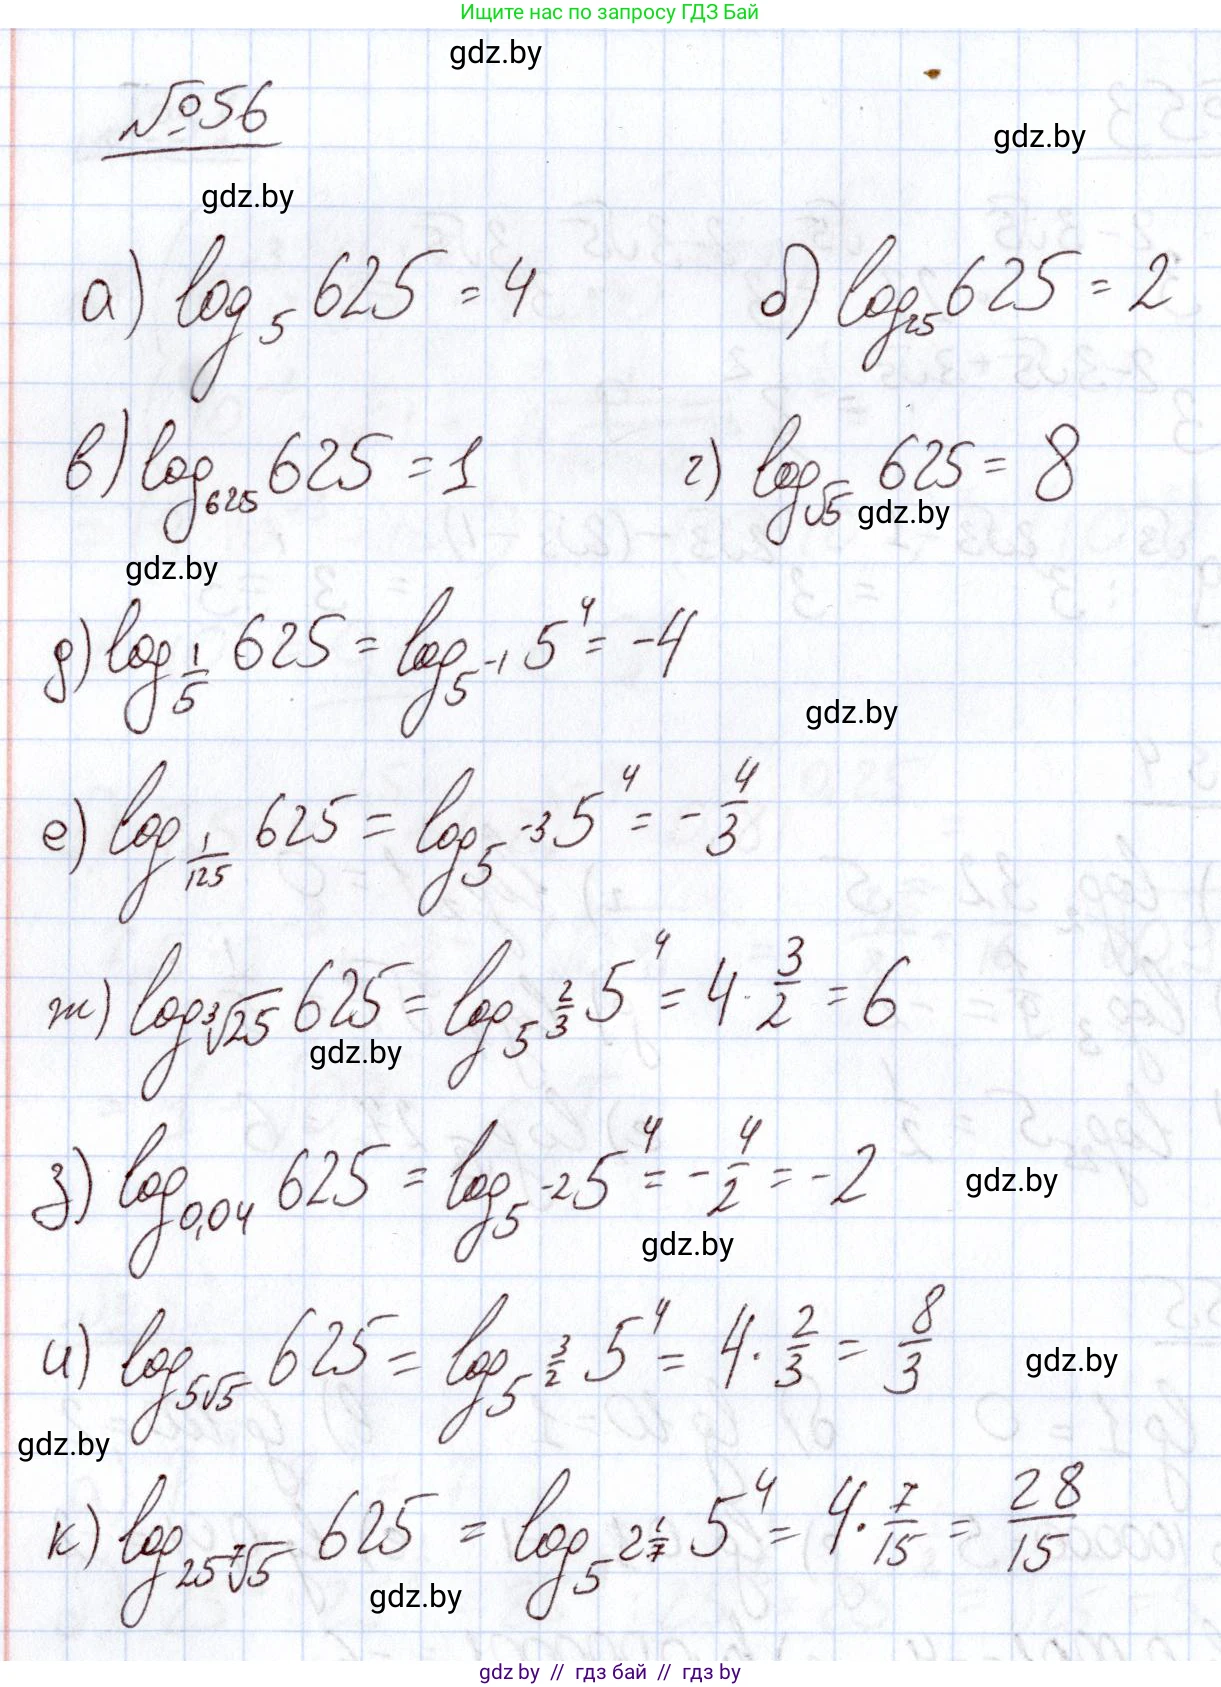 Ищите нас по запросу ГДЗ Бай
gdz.by
№56
gdz.by
gdz.by
а) log₅ 625 = 4 б) log₂₅ 625 = 2
в) log₆₂₅ 625 = 1 г) log_√5 625 = 8
gdz.by
gdz.by
д) log_1/5 625 = log_5⁻¹ 5⁴ = -4
gdz.by
е) log_1/125 625 = log_5⁻³ 5⁴ = -4/3
ж) log_∛25 625 = log_5^2/3 5⁴ = 4 · 3/2 = 6
gdz.by
з) log_0,04 625 = log_5⁻² 5⁴ = -4/2 = -2
gdz.by
gdz.by
и) log_5√5 625 = log_5^3/2 5⁴ = 4 · 2/3 = 8/3
gdz.by
gdz.by
к) log_25⁷√5 625 = log_5^2 1/7 5⁴ = 4 · 7/15 = 28/15
gdz.by
gdz.by // гдз бай // гдз by